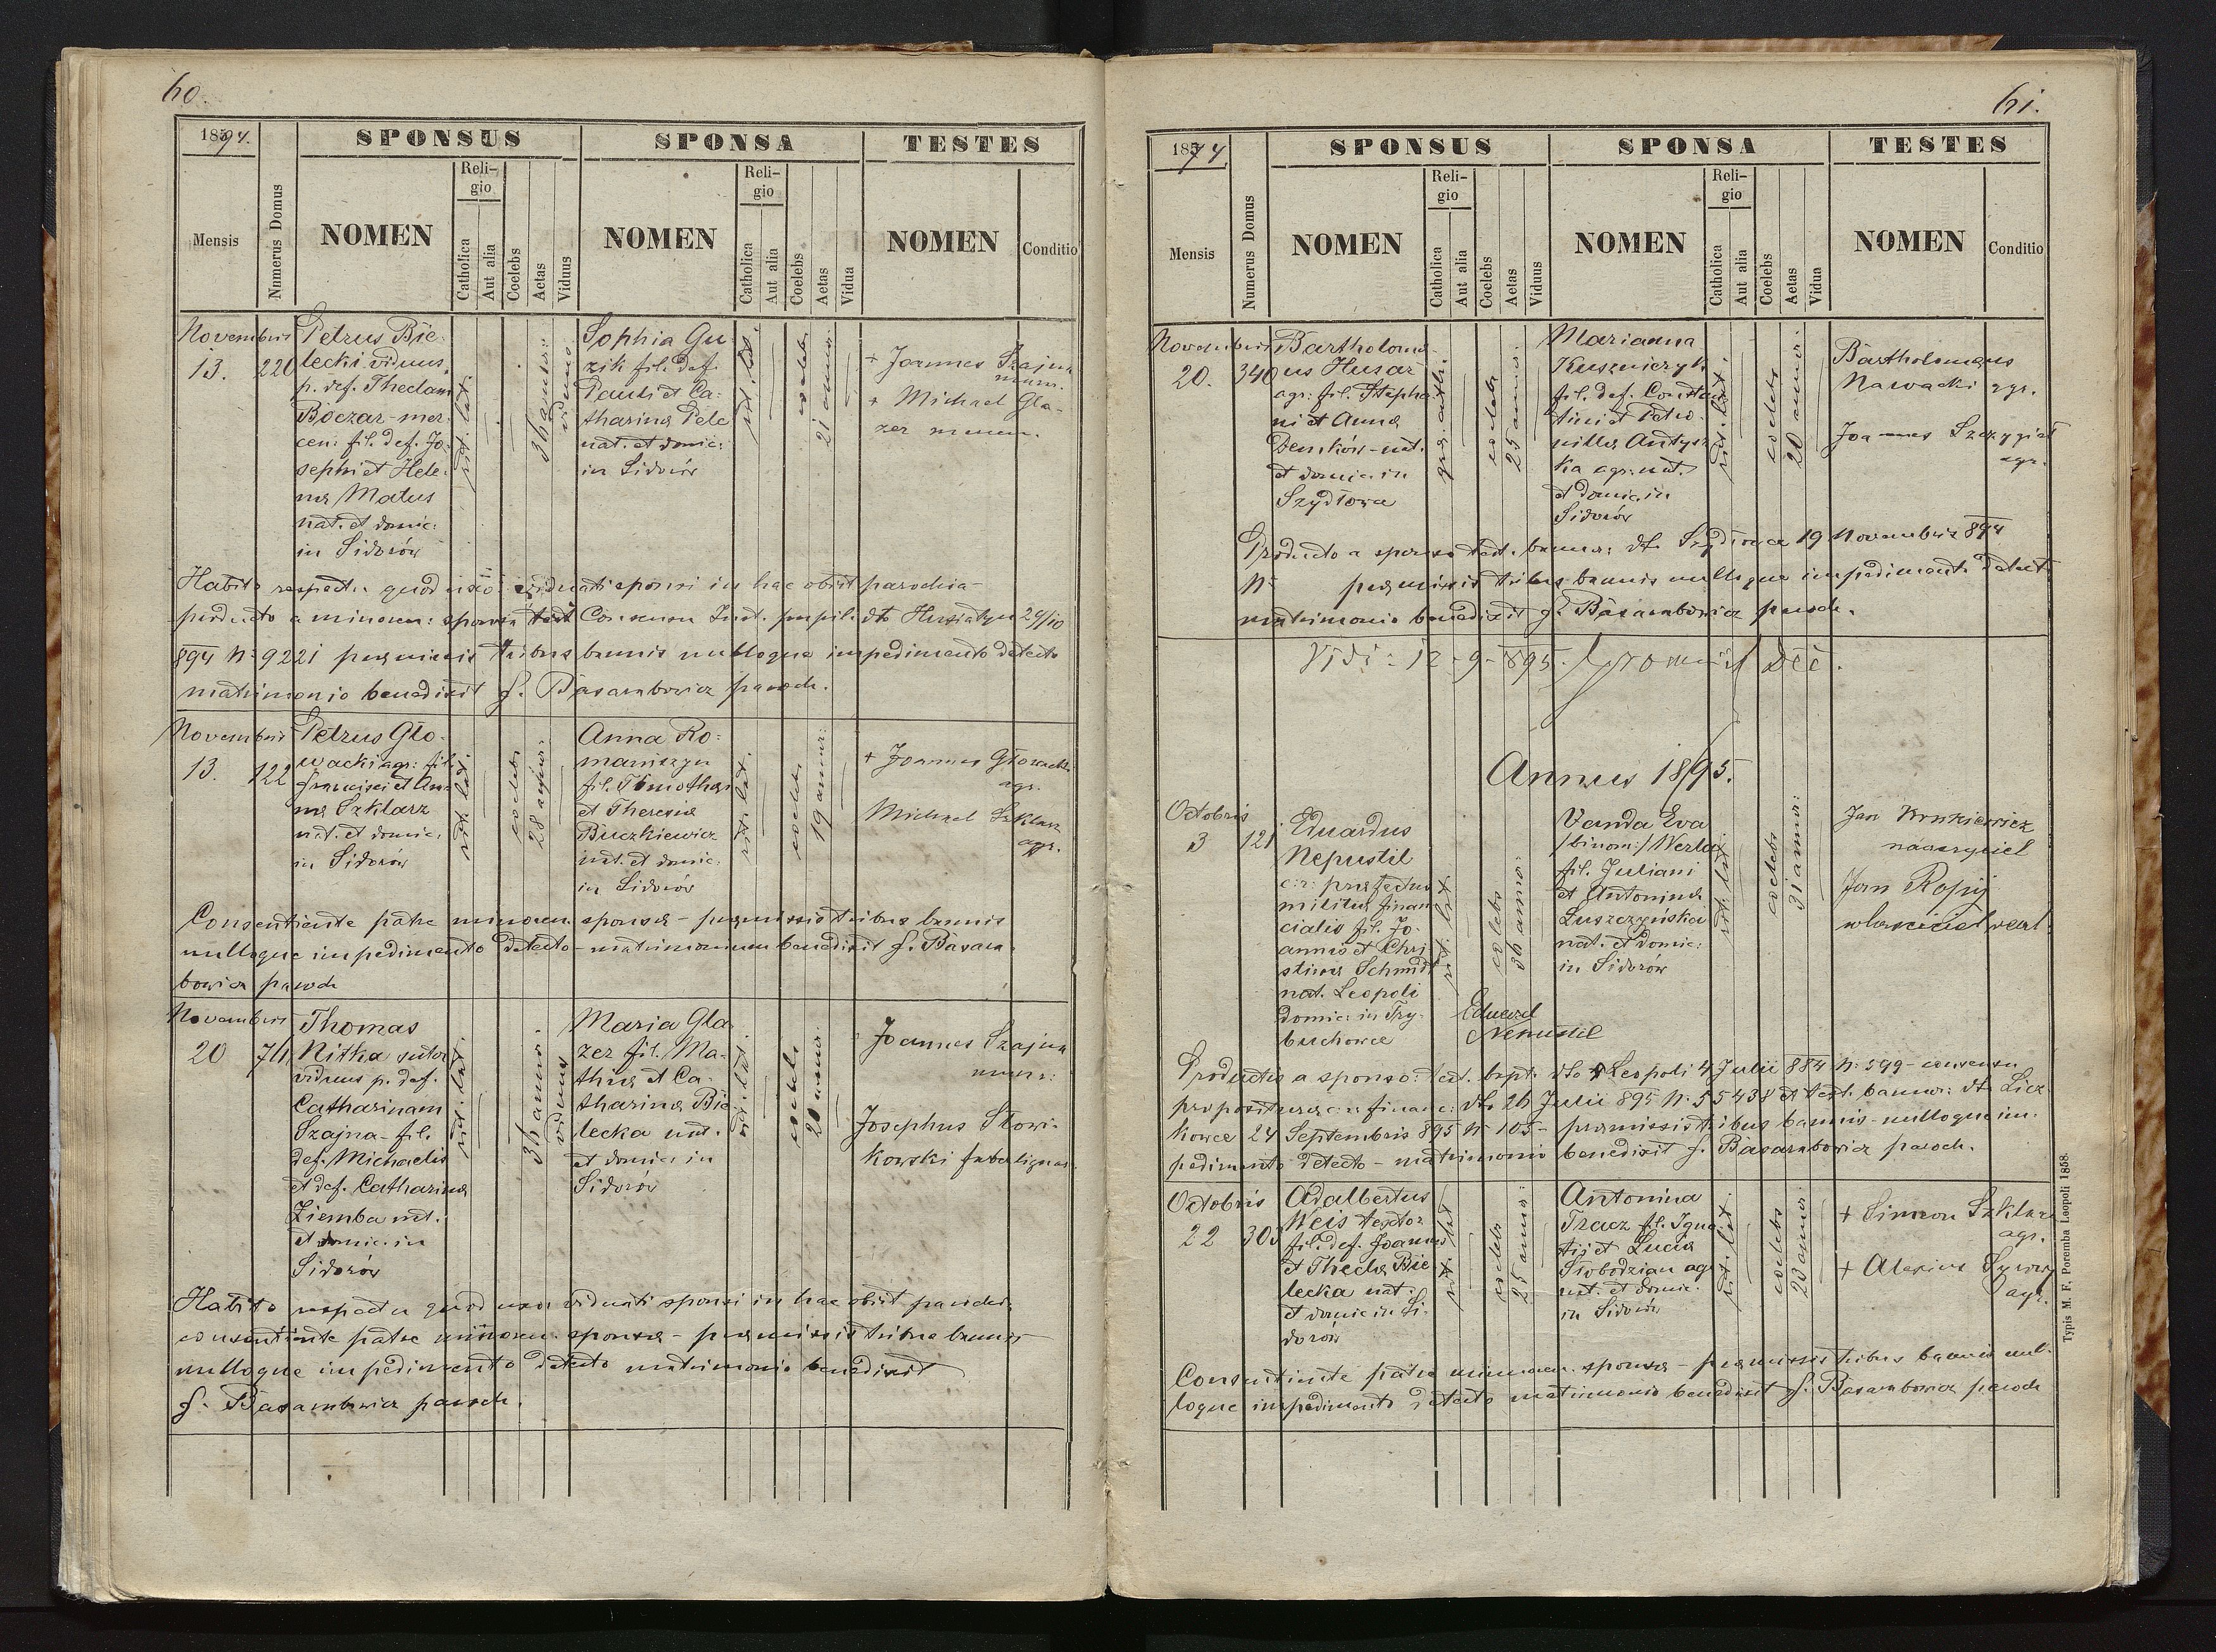 60.
1894.
SPONSUS
SPONSA
TESTES
Mensis
Numerus Domus
NOMEN
Religio
Catholica
Aut alia
Coelebs
Aetas
Viduus
NOMEN
Religio
Catholica
Aut alia
Coelebs
Aetas
Vidua
NOMEN
Conditio
Novembris
13.
220
Petrus Bie-
lecki viduus
p. def. Theclam
Boczar - mer-
cen: fil. def. Jo-
sephi et Hele-
næ Matus
nat. et domic:
in Sidorów
rit. lat.
36 annor:
viduus
Sophia Gu-
zik fil. def.
Pauli et Ca-
tharinæ Pele
nat. et domic:
in Sidorów
rit. lat.
coelebs
21 annor:
+ Joannes Szajna
murr.
+ Michael Gla-
zer
Habito respectu quod uxor viduati sponsi in hac obiit parochia -
producto a minoren: sponsa Consensu Iud. pupil. dto Husiatyn 24/10
894 N: 9221 præmissis tribus bannis nulloque impedimento detecto
matrimonio benedixit J. Basarabowicz paroch.
Novembris
13.
122
Petrus Gło-
wacki agr: fil.
Francisci et An-
næ Szklarz
nat. et domic:
in Sidorów
rit. lat.
coelebs
28 annor:
Anna Ro-
maniszyn
fil. Timothei
et Theresiæ
Buczkiewicz
nat. et domic:
in Sidorów
rit. lat.
coelebs
19 annor:
+ Joannes Głowacki
agr.
Michael Szklarz
agr.
Consentiente patre minoren. sponsæ - præmissis tribus bannis
nulloque impedimento detecto - matrimonium benedixit J. Basara-
bowicz paroch
Novembris
20
76
Thomas
Nitka sutor
viduus p. def.
Catharinam
Szajna - fil.
def. Michaelis
et def. Catharinæ
Ziemba nat.
et domic. in
Sidorów
rit. lat.
36 annor.
viduus
Maria Gla-
zer fil. Ma-
thiæ et Ca-
tharinæ Bie-
lecka nat.
et domic in
Sidorów
rit. lat.
coelebs
20 annor:
Joannes Szajna
murr:
Josephus Słowi-
kowski faber lignar.
Habito respectu quod uxor viduati sponsi in hac obiit parochia
consentiente patre minoren. sponsæ - præmissis tribus bannis
nulloque impedimento detecto matrimonio benedixit
J. Basarabowicz paroch.
61.
1894
SPONSUS
SPONSA
TESTES
Mensis
Numerus Domus
NOMEN
Religio
Catholica
Aut alia
Coelebs
Aetas
Viduus
NOMEN
Religio
Catholica
Aut alia
Coelebs
Aetas
Vidua
NOMEN
Conditio
Novembris
20.
340
Bartholomæ-
us Husar
agr: fil. Stepha-
ni et Annæ
Demków - nat.
et domic. in
Szydłowce
gr. cath.
coelebs
25 annor.
Marianna
Kuszniczyk
fil. def. Constan-
tini et Petro-
nillæ Antysz-
ka agr: nat.
et domic. in
Sidorów
rit. lat.
coelebs
20 annor.
Bartholomæus
Nawacki agr.
Joannes Szczygieł
agr.
Producto a sponso test. bannor: dto Szydłowce 19 Novembris 894
N: præmissis tribus bannis nulloque impedimento detecto
matrimonio benedixit J. Basarabowicz paroch.
Vidi: 12-9-895. Gromnicki Dec.
Annus 1895.
Octobris
3
121
Eduardus
Nepustil
c: r: præfectus
militiæ finan-
cialis fil. Jo-
annis et Chri-
stinæ Schmidt
nat. Leopoli
domic. in Try-
buchowce
rit. lat.
coelebs
36 annor:
Eduard
Nepustil
Vanda Eva
/binom:/ Werla
fil. Juliani
et Antoninæ
Łuszczyńska
nat. et domic:
in Sidorów
rit. lat.
coelebs
31 annor:
Jan Kunkiewicz
nauczyciel
Jan Ropij
właściciel real.
Productis a sponso: test. bapt. dto Leopoli 4 Julii 884 N: 599 - consensu
præposituræ c. r. financ: dto 26 Julii 895 N. 55438 et test. bannor: dto Licz-
kowce 24 Septembris 895 N 105 - præmissis tribus bannis - nulloque im-
pedimento detecto - matrimonio benedixit J. Basarabowicz paroch.
Octobris
22
305
Adalbertus
Weis textor
fil. def. Joannis
et Theclæ Bie-
lecka nat.
et domic in Si-
dorów
rit. lat.
coelebs
25 annor:
Antonina
Tracz fil. Igna-
tii et Luciæ
Swobodzian agr
nat. et domic.
in Sidorów
rit. lat.
coelebs
23 annor.
+ Simeon Szklarz
agr.
+ Alexius
agr.
Consentiente patre minoren. sponsæ - præmissis tribus bannis nul-
loque impedimento detecto matrimonio benedixit J. Basarabowicz paroch
Typis M. F. Poremba Leopoli 1858.